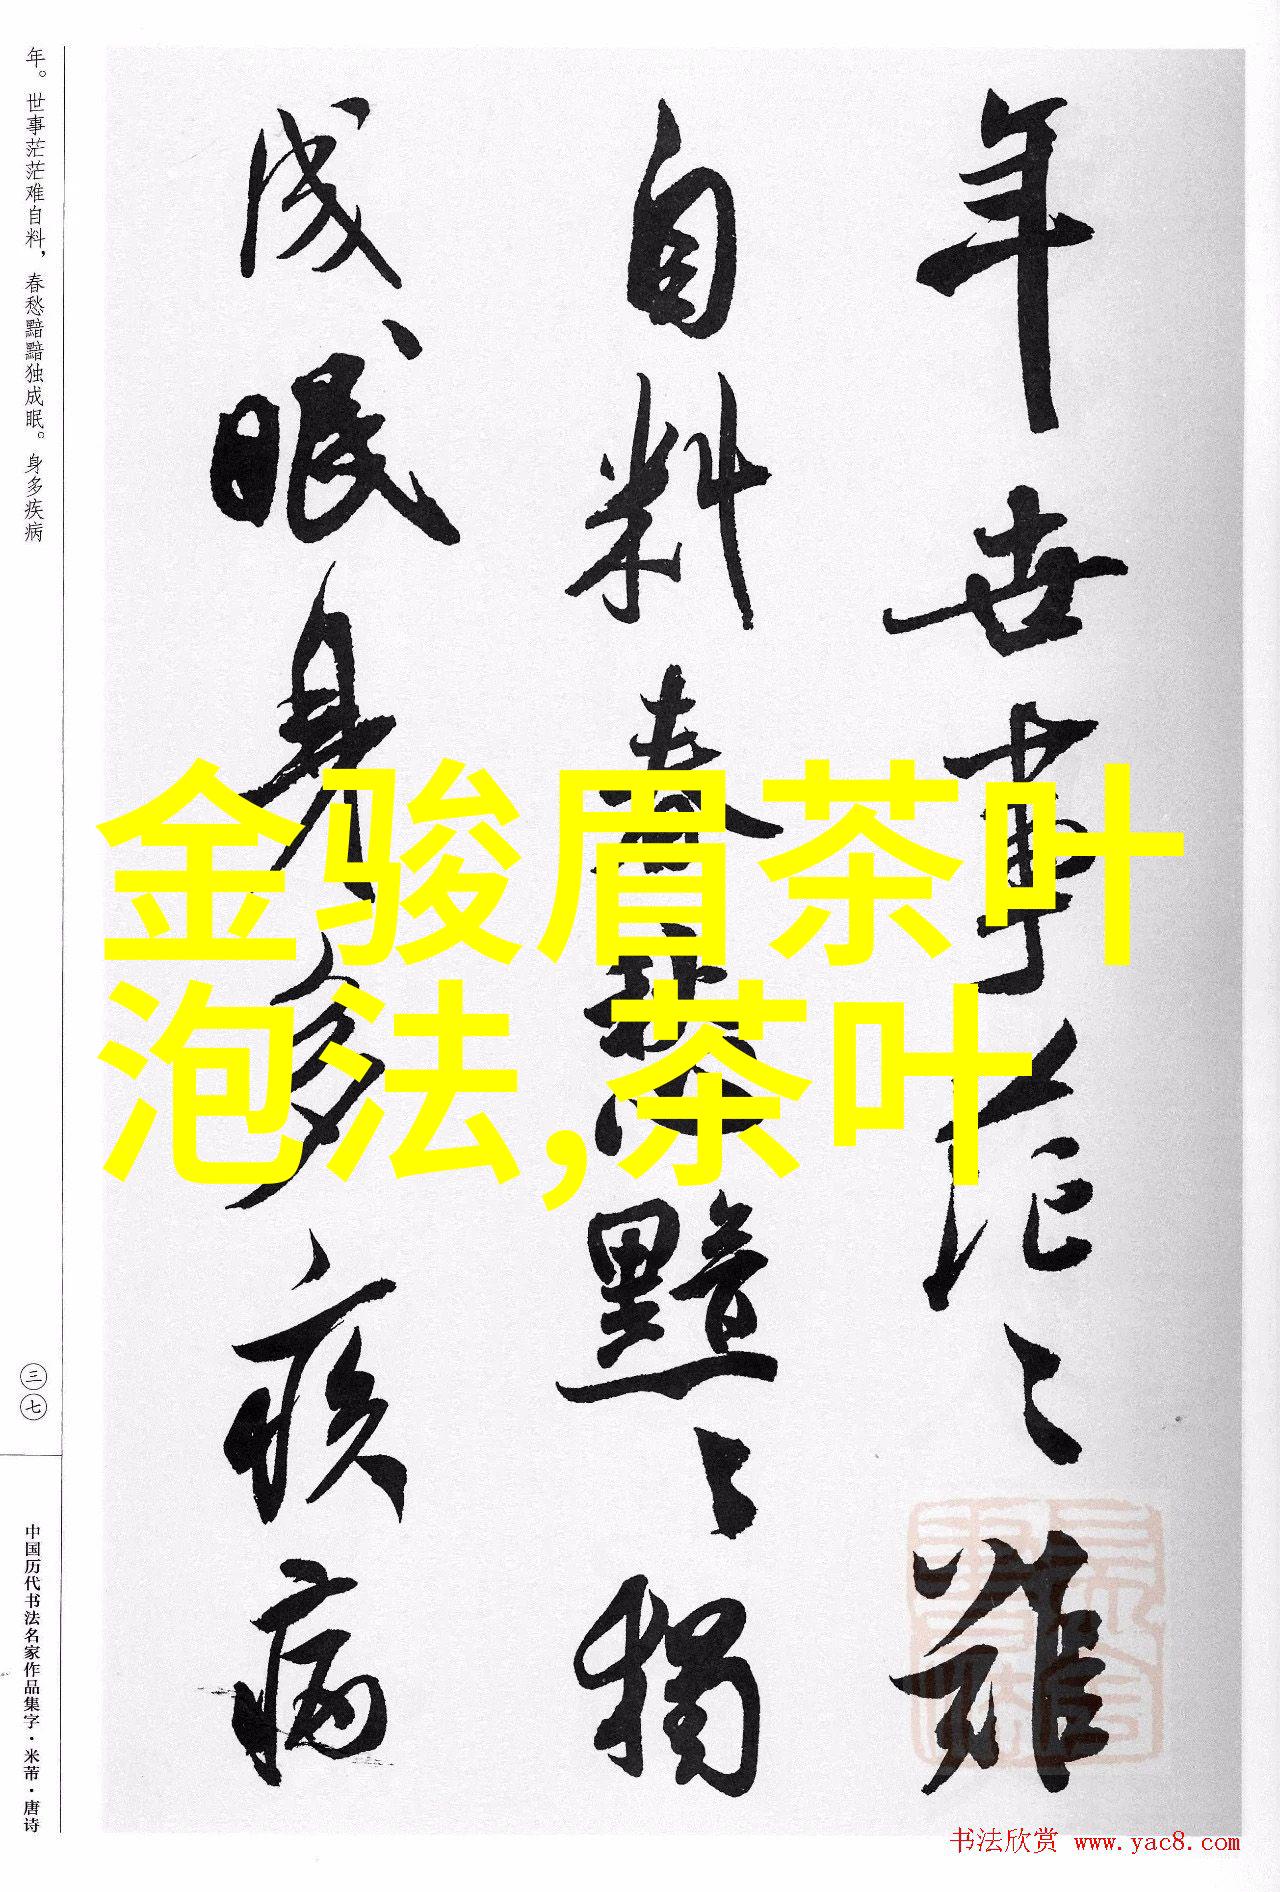 年世事茫〻難
自料春愁黯〻獨
成眠身多疾病
金骏眉茶叶
泡法,茶叶
年。世事茫茫难自料，春愁黯黯独成眠。身多疾病
三七
中国历代书法名家作品集字·米芾·唐诗
书法欣赏 www.yac8.com